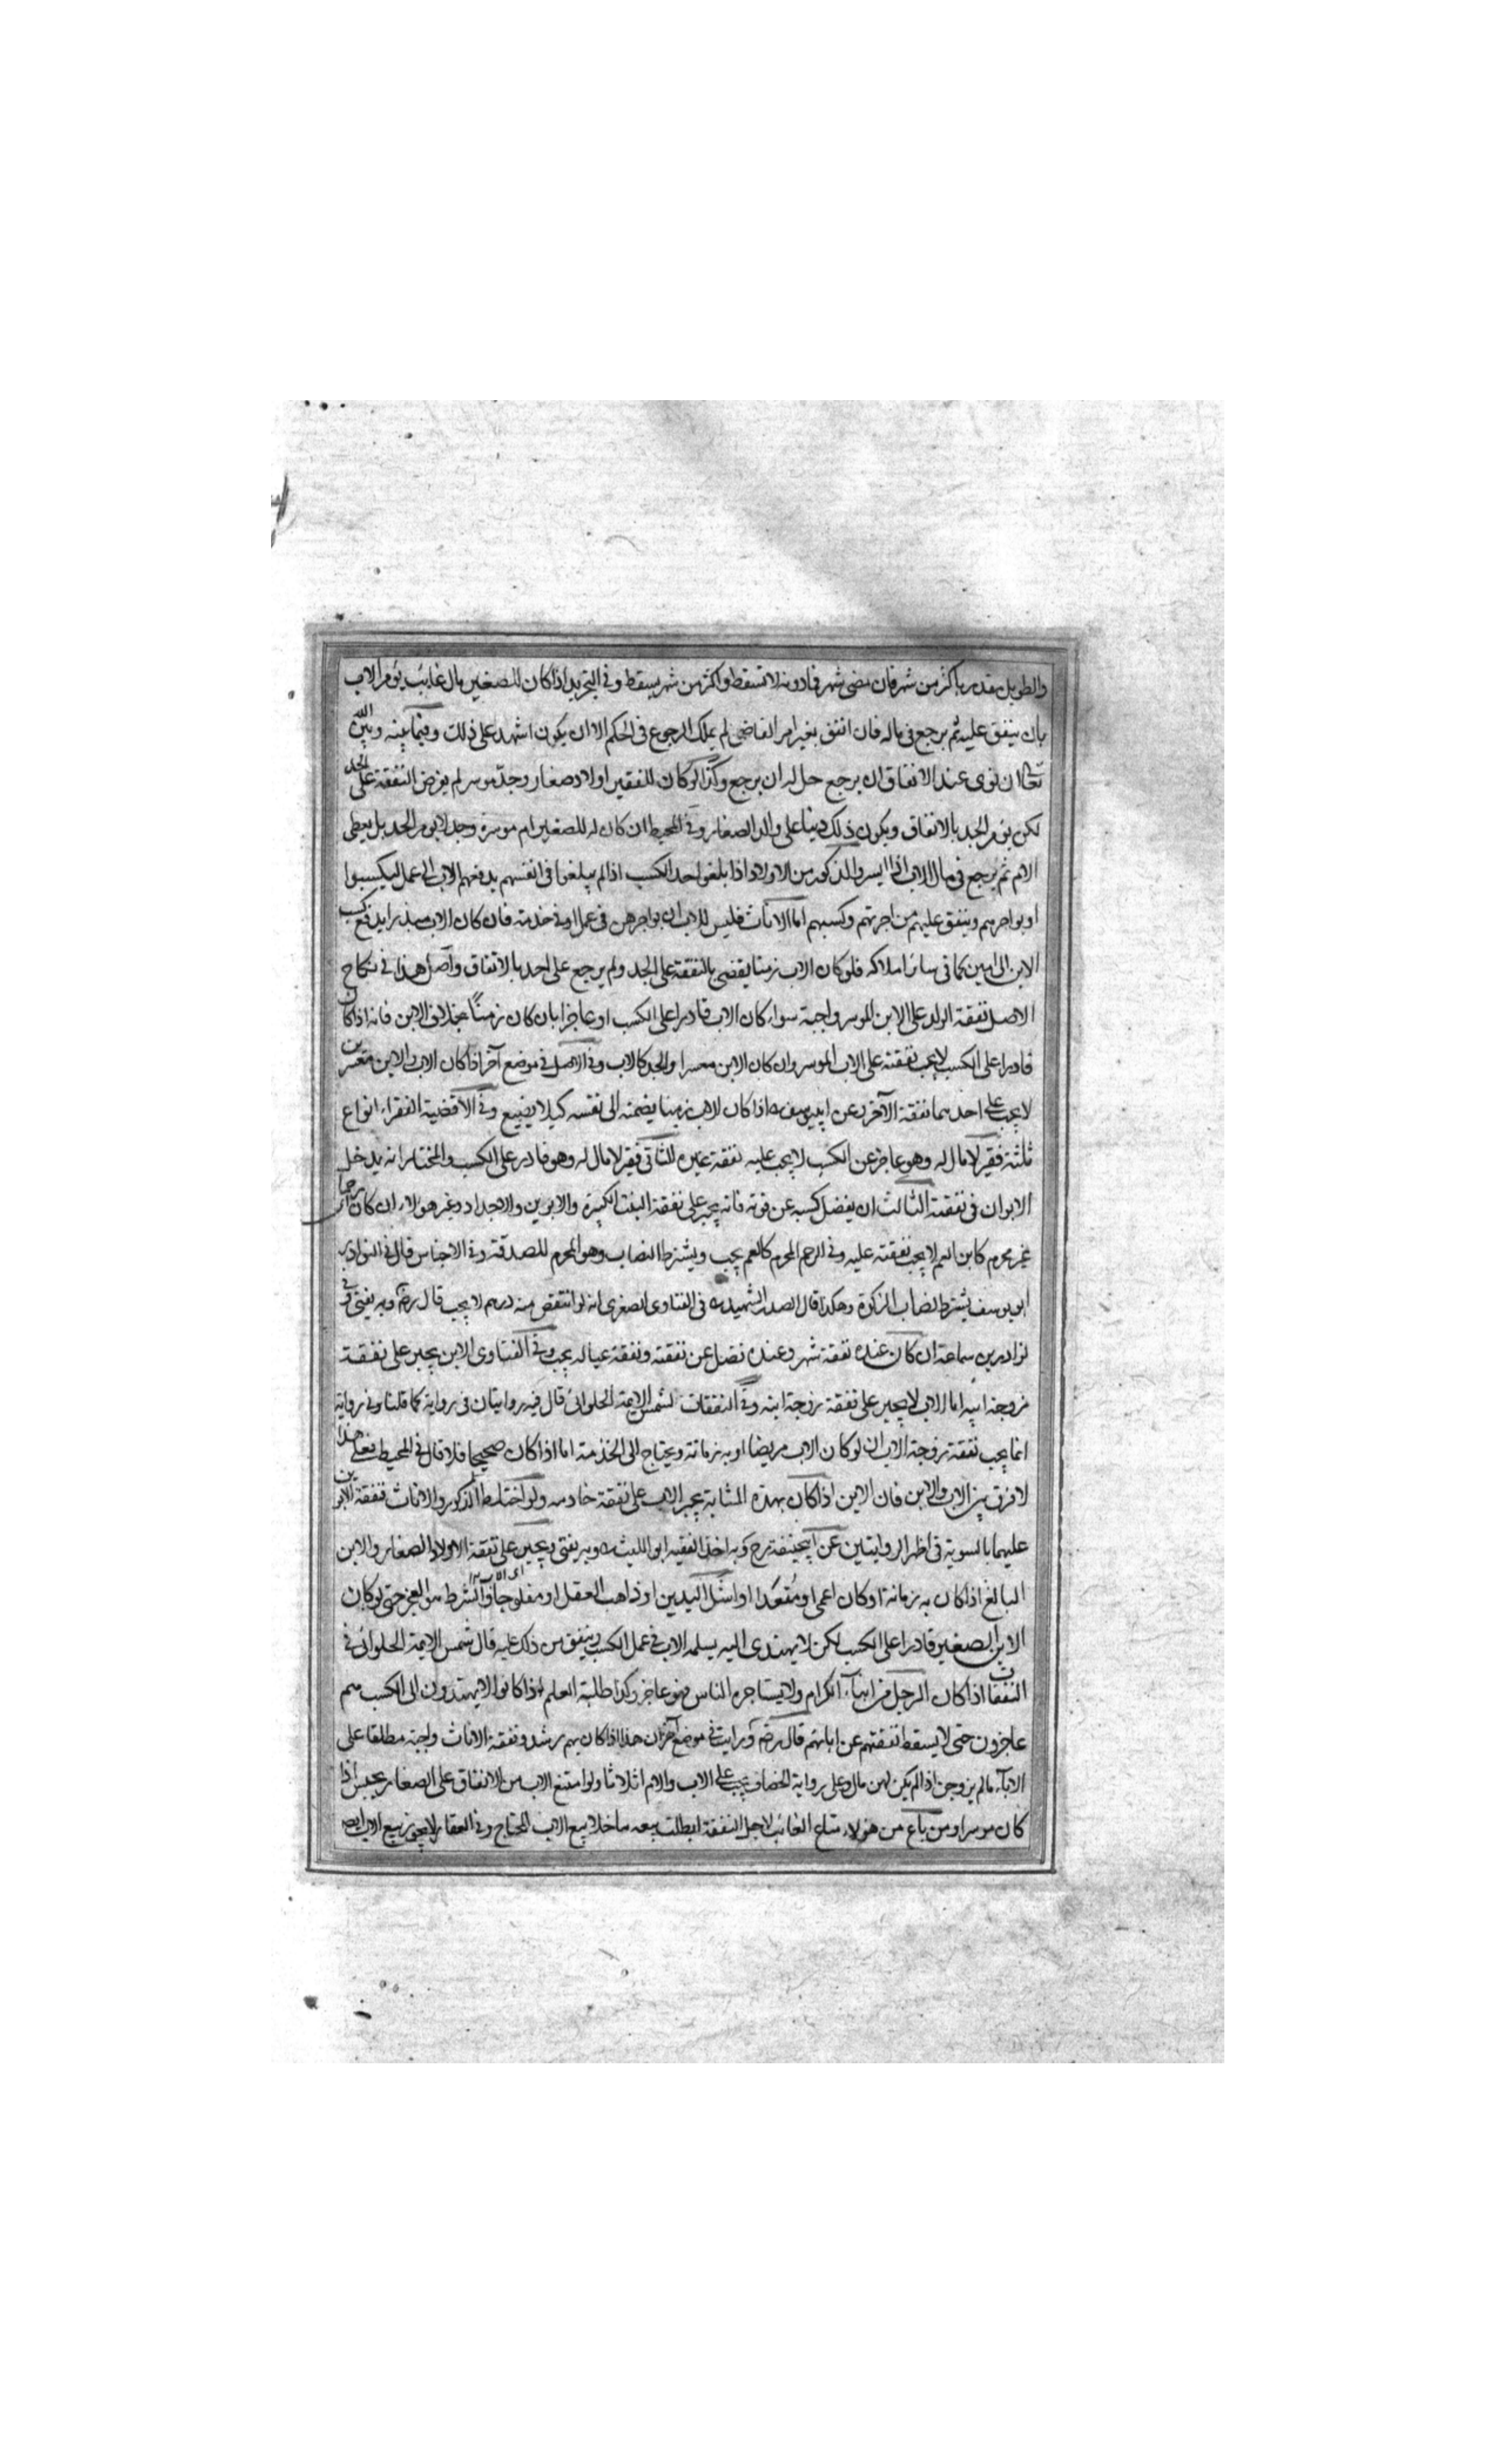 والطويل مقدر باكثر من شهر فان مضى شهر فما دونه لا تسقط واكثر من شهر يسقط وفي التجريد اذا كان للصغير مال غايب يؤمر الاب
بان ينفق عليه ثم يرجع في ماله فان انفق بغير امر القاضي لم يملك الرجوع في الحكم الا ان يكون اشهد على ذلك وفيما بينه وبين الله
تعالى ان نوى عند الانفاق ان يرجع حل له ان يرجع وكذا لو كان للفقير اولاد صغار وجد موسر لم يفرض النفقة على الجد
لكن يؤمر الجد بالانفاق ويكون ذلك دينا على والد الصغار وفي المحيط ان كان للصغير ام موسرة وجد لا يؤمر الجد بل يعطى
الام ثم يرجع في مال الاب اذا ايسر والذكور من الاولاد اذا بلغوا حد الكسب اذا لم يبلغوا في انفسهم يدفعهم الاب الى عمل ليكسبوا
او يواجرهم وينفق عليهم من اجرتهم وكسبهم اما الاناث فليس للاب ان يواجرهن في عمل او في خدمة فان كان الاب مبذرا يدفع كسب
الابن الى امين كما في سائر املاكه فلو كان الاب زمنا يقضى بالنفقة على الجد ولم يرجع على احد بالاتفاق واصل هذا في نكاح
الاصل نفقة الوالد على الابن الموسر واجبة سواء كان الاب قادرا على الكسب او عاجزا بان كان زمناً بخلاف الابن فانه اذا كان
قادرا على الكسب لا يجب نفقته على الاب الموسر وان كان الابن معسرا والجد كالاب وفي الاصل في موضع آخر اذا كان الاب والابن معسرين
لا يجب على احدهما نفقة الآخر وعن ابي يوسف ره اذا كان الاب زمينا يضمنه الى نفسه كيلا يضيع وفي الاقضية الفقراء انواع
ثلثة فقير لا مال له وهو عاجز عن الكسب لا يجب عليه نفقة غيره الثاني فقير لا مال له وهو قادر على الكسب والمختار انه يدخل
الابوان في نفقته الثالث ان يفضل كسبه عن قوته فانه يجبر على نفقة البنت الكبيرة والابوين والاجداد وغير هؤلاء ان كان رحما
غير محرم كابن العم لا يجب نفقته عليه وفي الرحم المحرم كالعم يجب ويشترط النصاب وهو المحرم للصدقة وفي الاجناس قال في النوادر
ابو يوسف يشترط نصاب الزكوة وهكذا قال الصدر الشهيد ره في الفتاوى الصغرى انه لو انتقص منه درهم لا يجب قال رضه وبه يفتى وفي
نوادر بن سماعة ان كان عنده نفقة شهر وعنده فضل عن نفقته ونفقة عياله يجب وفي الفتاوى الابن يجبر على نفقة
زوجة ابيه اما الاب لا يجبر على نفقة زوجة ابنه وفي النفقات لشمس الايمة الحلوائي قال فيه روايتان في رواية كما قلنا وفي رواية
انما يجب نفقة زوجة الاب ان لو كان الاب مريضا او به زمانة ويحتاج الى الخدمة اما اذا كان صحيحا فلا قال في المحيط فعلى هذا
لا فرق بين الاب والابن فان الابن اذا كان بهذه المثابة يجبر الاب على نفقة خادمه ولو اختلط الذكور والاناث فنفقة الابوين
عليهما بالسوية في اظهر الروايتين عن ابيحنيفة رح وبه اخذ الفقيه ابو الليث ره وبه يفتى ويجبر على نفقة الاولاد الصغار والابن
البالغ اذا كان به زمانة او كان اعمى او مُقعدا او اشل اليدين او ذاهب العقل او مفلوجا والشرط هو العجز حتى لو كان
الابن الصغير قادرا على الكسب لكن لا يهتدى اليه يسلمه الاب في عمل الكسب وينفق من ذلك عليه قال شمس الايمة الحلوائي في
النفقات اذا كان الرجل من ابناء الكرام ولا يستاجره الناس فهو عاجز وكذا طلبة العلم اذا كانوا لا يهتدون الى الكسب هم
عاجزون حتى لا يسقط نفقتهم عن ابائهم قال رضه ورايت في موضع آخر ان هذا اذا كان بهم رشد ونفقة الاناث واجبة مطلقا على
الاباء ما لم يزوجن اذا لم يكن لهن مال وعلى رواية الخصاف يجب على الاب والام اثلاثا ولو امتنع الاب من الانفاق على الصغار يحبس اذا
كان موسرا ومن باع من هؤلاء متاع الغائب لاجل النفقة ابطلت بيعه ما خلا بيع الاب المحتاج وفي العقار لا يجوز بيع الاب ايضا